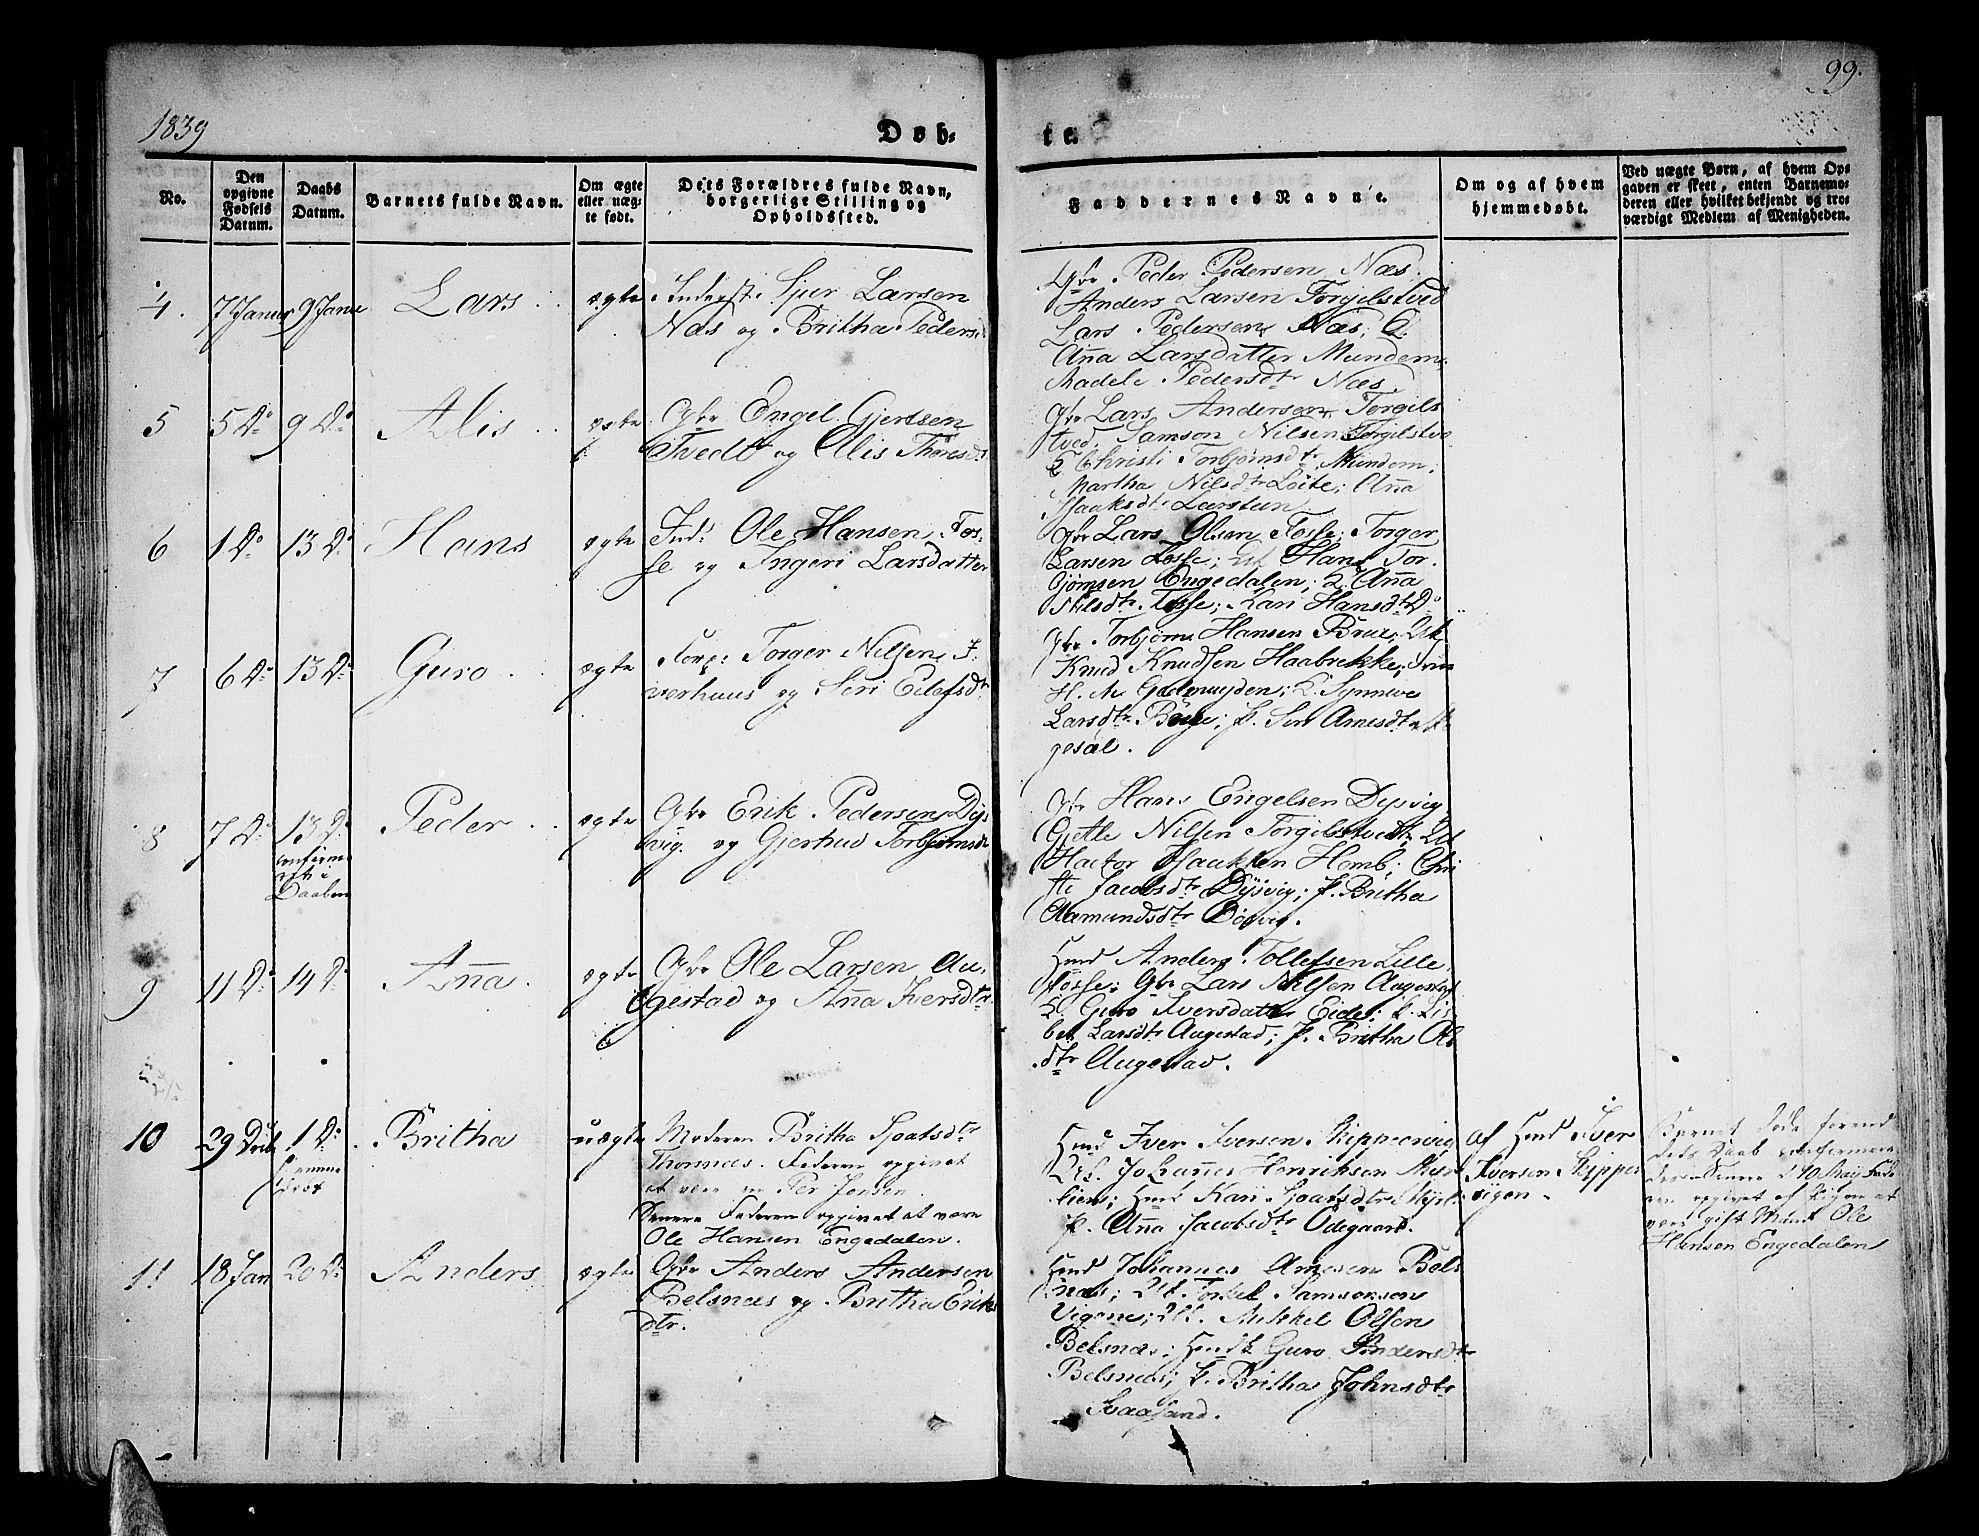 99.
1839
Døb-
te.
No.
Den
opgivne
Fødsels
Datum.
Daabs
Datum.
Barnets fulde Navn.
Om ægte
eller uæg-
te født.
Dets Forældres fulde Navn,
borgerlige Stilling og
Opholdssted.
Faddernes Navne.
Om og af hvem
hjemmedøbt.
Ved uægte Børn, af hvem Op-
gaven er skeet, enten Barnemo-
deren eller hvilket bekjendt og tro-
værdigt Medlem af Menigheden.
4. 7 Januar 9 Janu Lars ægte Inderst Sjur Larsen
Næs og Britha Peders
Gbr Peder Pedersen Næs.
Anders Larsen Torgilstved
Lars Pedersen Næs;
Aña Larsdatter Mundem,
Madele Pedersdtr Næs.
5 5 Do 9 Do Alis ægte Gbr Engel Gjertsen
Tvedt og Alis Thoresdt
Gbr Lars Andersen Torgils
tved. Samson Nilsen Torgilstve
Christi Torbjørnsdtr Mundem;
Martha Nilsdtr Løite; Aña
6 1 Do 13 Do Hans ægte Ind: Ole Hansen Fos-
se og Ingeri Larsdatter
Gbr Lars Olsen Fosse; Torger
Larsen Fosse; Hans Tor-
bjørnsen Engedalen; Aña
Nilsdtr Fosse; Kari Hansdtr Do
7 6 Do 13 Do Guro ægte Torger Nilsen I-
verhuus og Siri Eilefsdtr
Gbr Torbjørn Hansen Brue;
Knud Knudsen Haabrekke;
H. M. Gjelmuyden; Synneve
Larsdtr Børge; p. Siri Arnesdtr
gesæt.
8 7 Do 13 Do Peder ægte Gbr Erik Pedersen Dys-
vig og Gjertrud Torbjørnsdtr
confirme-
ret i
Daaben
Gbr Hans Engelsen Dysvig
Gjetle Nilsen Torgilstvedt;
Hactor Isaaksen Homb; Chri
sti Jacobsdtr Dysvig; p. Britha
Aamundsdtr Døsvig.
9 11 Do 14 Do Aña ægte Gbr Ole Larsen Au-
gestad og Aña Iversdtr
Anders Tollefsen Lille
fosse; Gbr Lars Nilsen Augestad
Guro Iversdatter Eide; p. Lis
bet Larsdtr Augestad; p. Britha Ols
dtr Augestad.
10 29 Dcbr 1 Do Britha uægte Moderen Britha Sjoatsdtr
Thornæs. Faderen opgivet
at være en Per Jonsen
Senere Faderen opgivet at være
Ole Hansen Engedalen.
hjemme
døbt
Iver Iversen Skippervig
Johañes Henriksen
Kari Sjoatsdtr
p. Aña Jacobsdtr Ødegaard.
af Iver
Iversen Skipper
vigen.
Barnet døde forend
dets Daab
Senere d 10 May Fade
ren opgivet af Pigen at
være gift Mand Ole
Hansen Engedalen
11 18 Jan 20 Do Anders ægte Gbr Anders Andersen
Belsnæs og Britha Eriks
dtr.
Johannes Arnesen Bels
næs; Torkel Samsonsen
Vigene; Mikkel Olsen
Belsnæs; Guro Andersdtr
Belsnæs; p. Britha Johnsdtr
Svaasand.